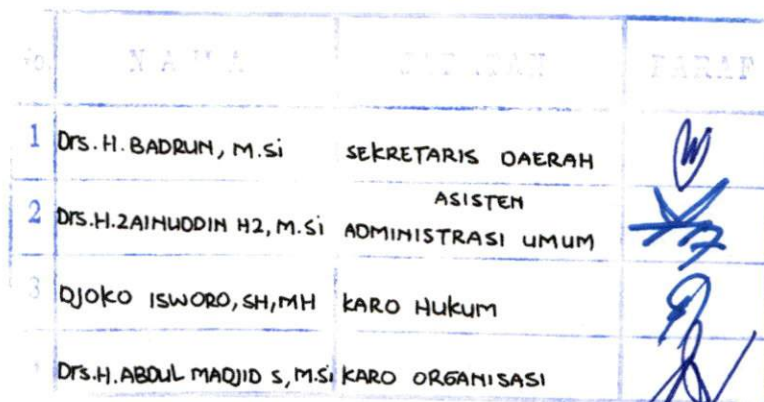 No. NAMA JABATAN PARAF
1 Drs. H. BADRUN, M.Si SEKRETARIS DAERAH
ASISTEN
2 Drs.H.ZAINUDDIN HZ, M.Si ADMINISTRASI UMUM
3 DJOKO ISWORO, SH, MH KARO HUKUM
Drs.H. ABDUL MADJID S, M.Si KARO ORGANISASI